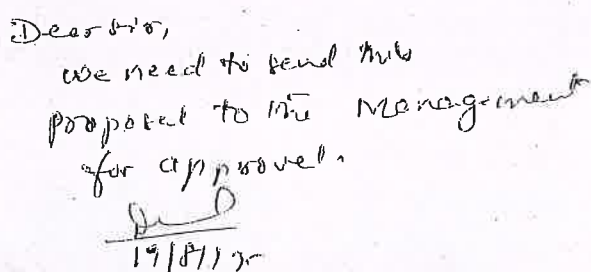 Dear Sir,
We need to send this
proposal to the Management
for approval.
19/8/